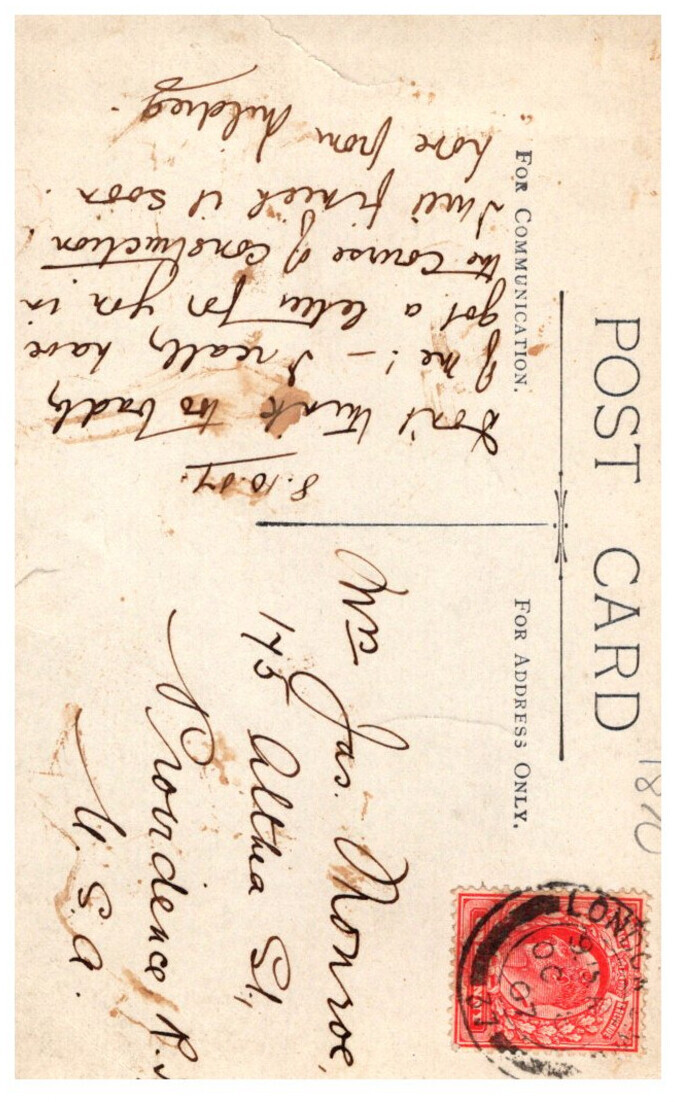 POST CARD
FOR COMMUNICATION.
FOR ADDRESS ONLY.
8.10.07.
Don't think too badly
of me! — I really have
got a letter for you in
the course of construction!
I will finish it soon.
Love from Mildred.
Mrs Jas. Monroe,
175 Althea St.,
Providence, R.
U.S.A.
LONDON
OC
07
27
1870